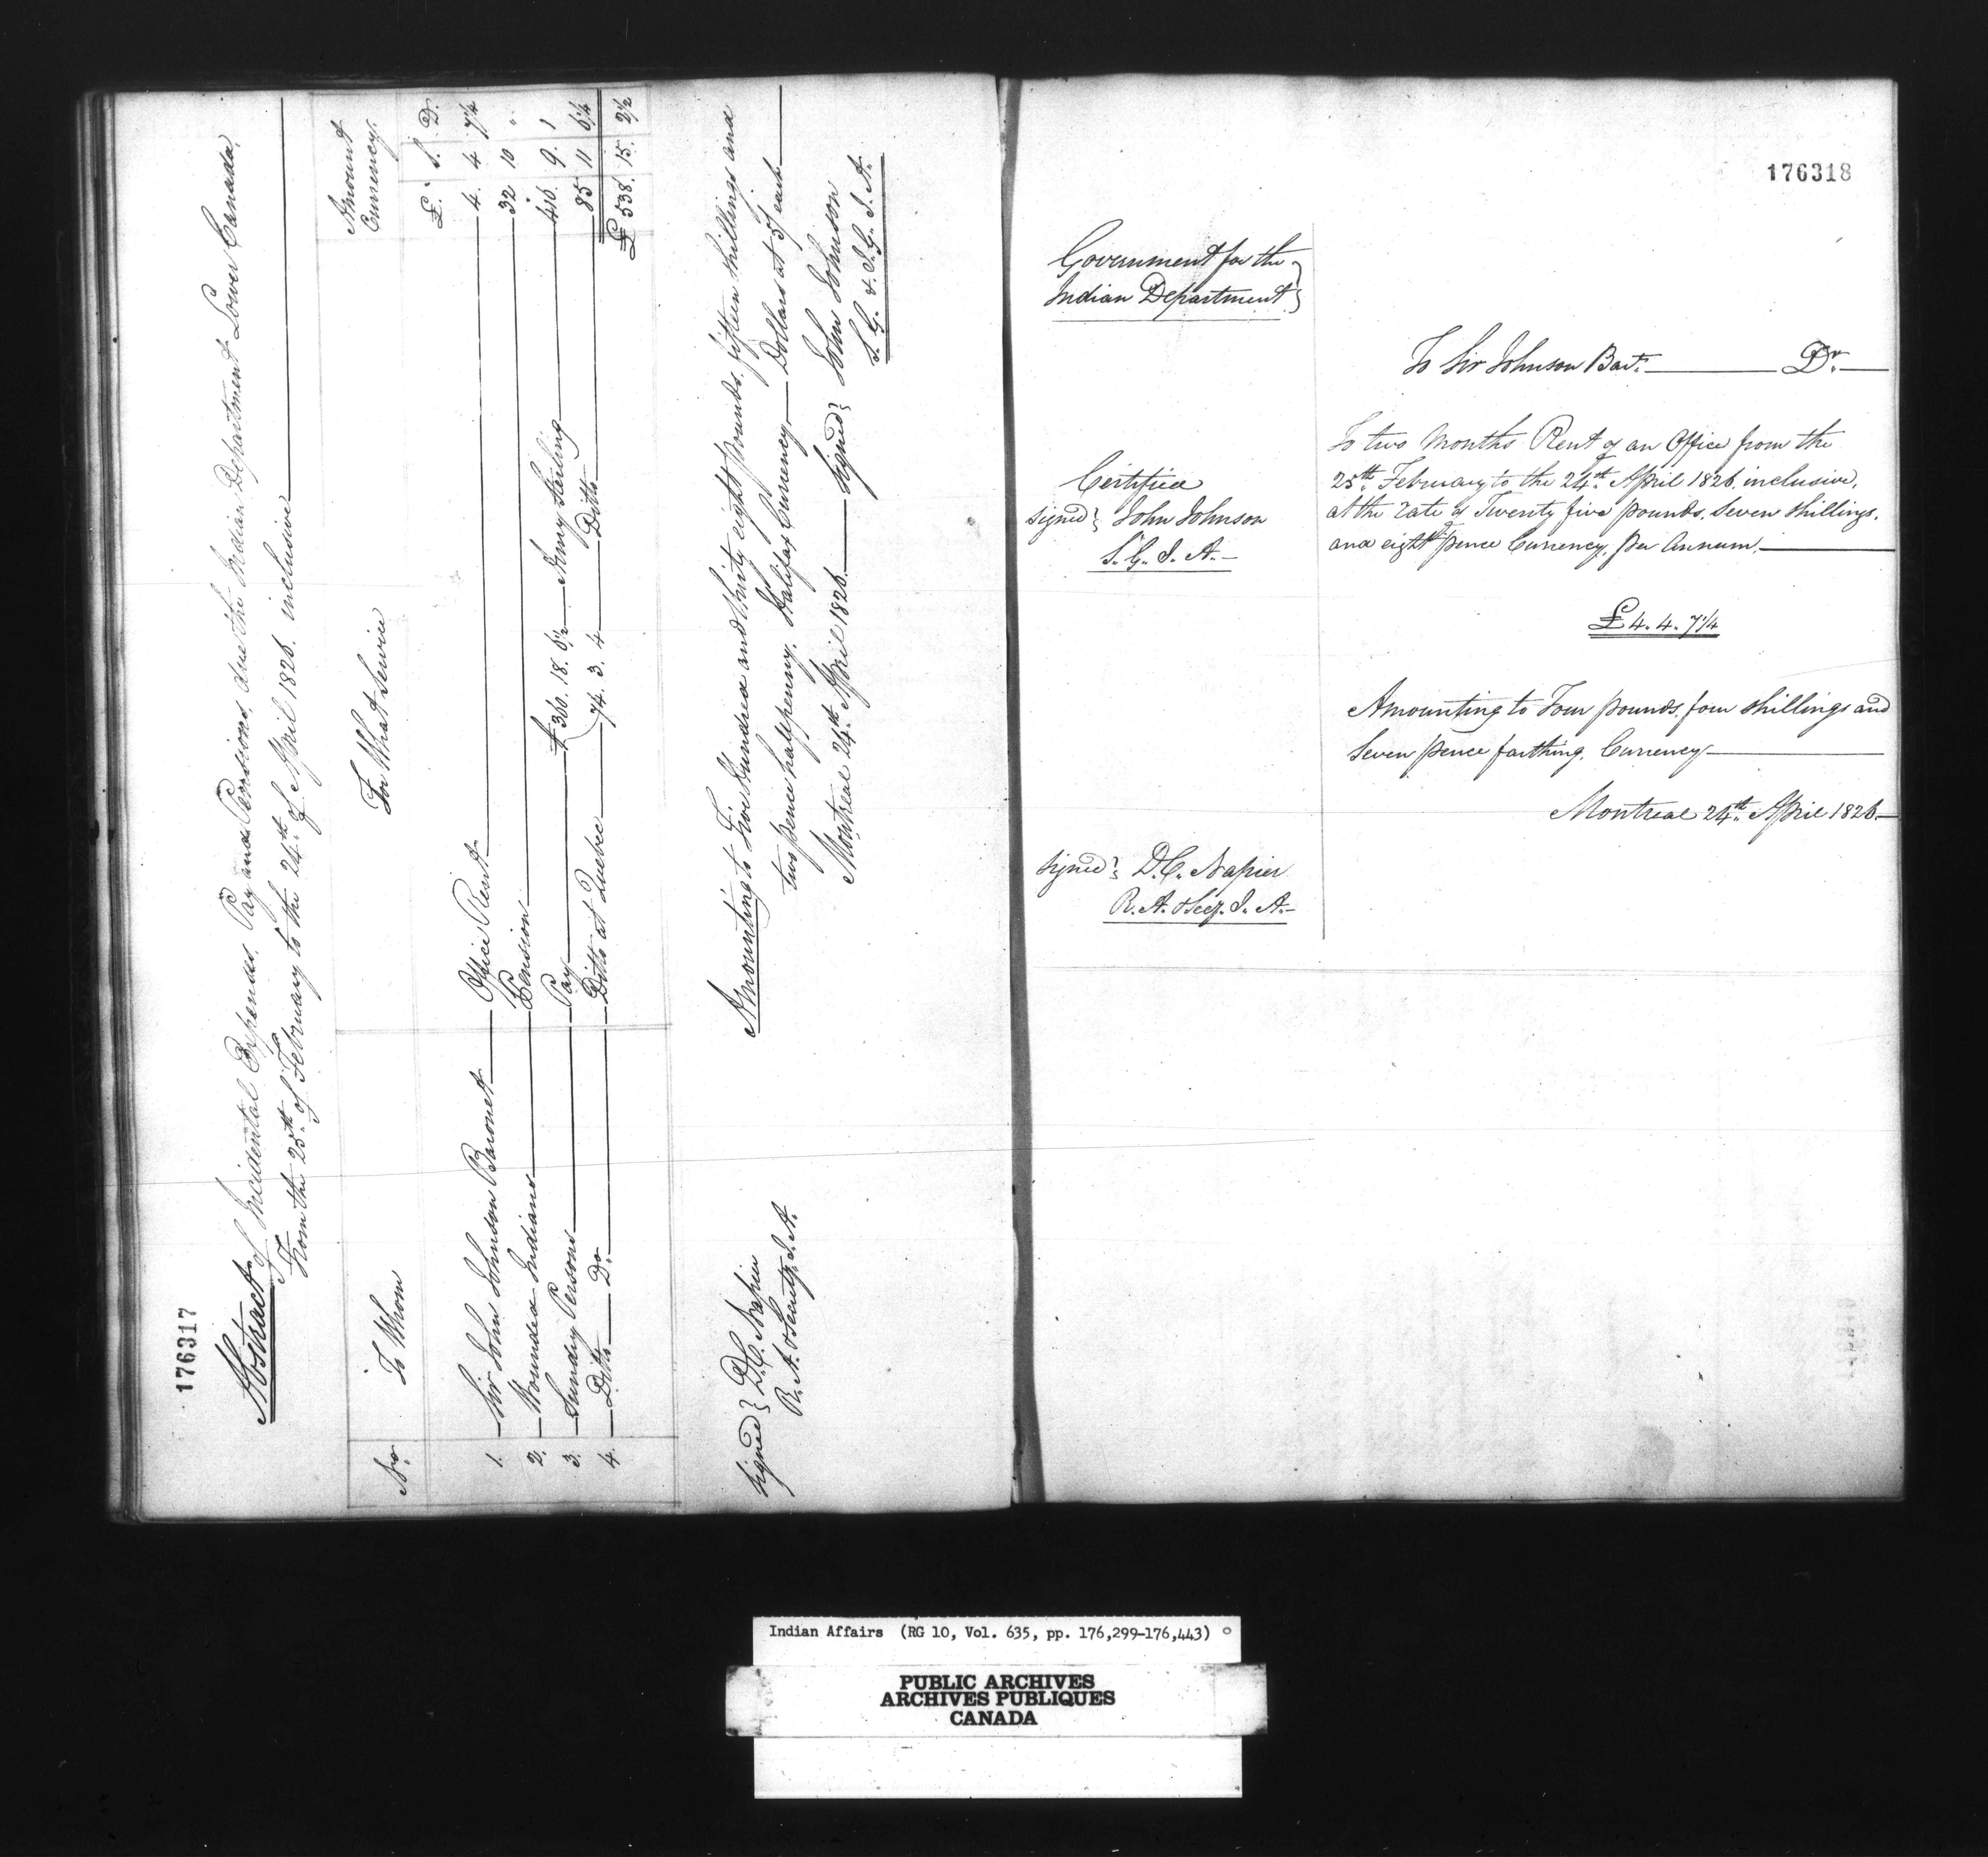 176317
Abstract of Incidental Expenses, Pay and Pensions, due the Indian Department Lower Canada,
From the 25th of February to the 24th of April 1826. inclusive
No. To Whom For What Service Amount Currency.
£. S. D.
1. Sir John Johnson Baronet Office Rent 4. 4 7 1/4
2. Wounded Indians Pension 32 10 "
3. Sundry Persons Pay £360. 18. 6 1/2 Army Sterling 416. 9. 1
4. Ditto Do. Ditto at Quebec 74. 3. 4 Ditto 85 11 6 1/4
£ 538. 15. 2 1/2
Amounting to Five Hundred and thirty eight pounds, fifteen shillings and
two pence halfpenny. Halifax Currency Dollars at 5/ each
Montreal 24th April 1826.
signed} John Johnson
S. G. & I. G. I. A.
signed} D. C. Napier
R. A. & Secrety. I. A.
176318
Government for the
Indian Department}
To Sir Johnson Bart. Dr.
To two Months Rent of an Office from the
25th February to the 24th April 1826. inclusive,
at the rate of Twenty five pounds, Seven Shillings,
and eight pence Currency, per Annum.
£ 4. 4. 7 1/4
Certified
signed} John Johnson
S. G. I. A.
Amounting to Four pounds, four shillings and
Seven pence farthing, Currency
Montreal 24th April 1826
signed} D. C. Napier
R. A. & Secy. I. A.
Indian Affairs (RG 10, Vol. 635, pp. 176,299-176,443)
PUBLIC ARCHIVES
ARCHIVES PUBLIQUES
CANADA